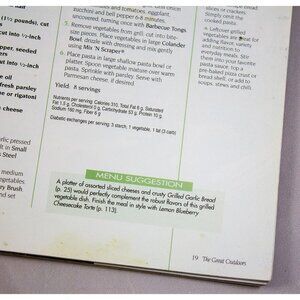 (1½ pounds), cut
into ½-inch
pepper, seeded
into ½-inch
oil
cheese
garlic pressed
in Small
Steel
medium
vegetables.
Brush
and set
tomatoes, eggplant,
zucchini and bell pepper 6-8 minutes,
uncovered; turning once with Barbecue Tongs
5. Remove vegetables from grill, cut into
Place vegetables in large Colander
Bowl; drizzle with dressing and mix gently
using Mix 'N Scraper®
6. Place pasta in large shallow pasta bowl or
platter. Spoon vegetable mixture over warm
pasta. Sprinkle with parsley. Serve with
Parmesan cheese, if desired
Yield: 8 servings
Nutrients per serving: Calories 310, Total Fat 6 g, Saturated
Fat 1.5 g, Cholesterol 5 g, Carbohydrate 53 g, Protein 10 g,
Sodium 180 mg, Fiber 6 g
Diabetic exchanges per serving: 3 starch, 1 vegetable, 1 fat (3 carb)
MENU SUGGESTION
A platter of assorted sliced cheeses and crusty Grilled Garlic Bread
(p. 25) would perfectly complement the robust flavors of this grilled
vegetable dish. Finish the meal in style with Lemon Blueberry
Cheesecake Torte (p. 113).
bread
slices or crackers.
Simply omit the
cooked pasta.
Leftover grilled
vegetables are great for
adding flavor, variety
and nutrition to
everyday meals. Stir
them into your favorite
pasta sauce; top a
pre-baked pizza crust or
bread shell; or add to
soups, stews and chili
19 The Great Outdoors